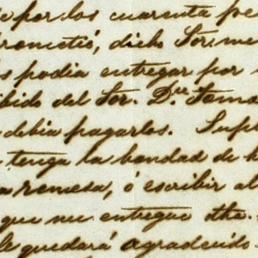 de por los cuarenta pe
rometió, dicho Sor. me
s podia entregar por
ibido del Sor. Dn. Tomas
debia pagarlos. Sup
tenga la bondad de h
a remesa, ó escribir al
que me entregue dho.
le quedará agradecido